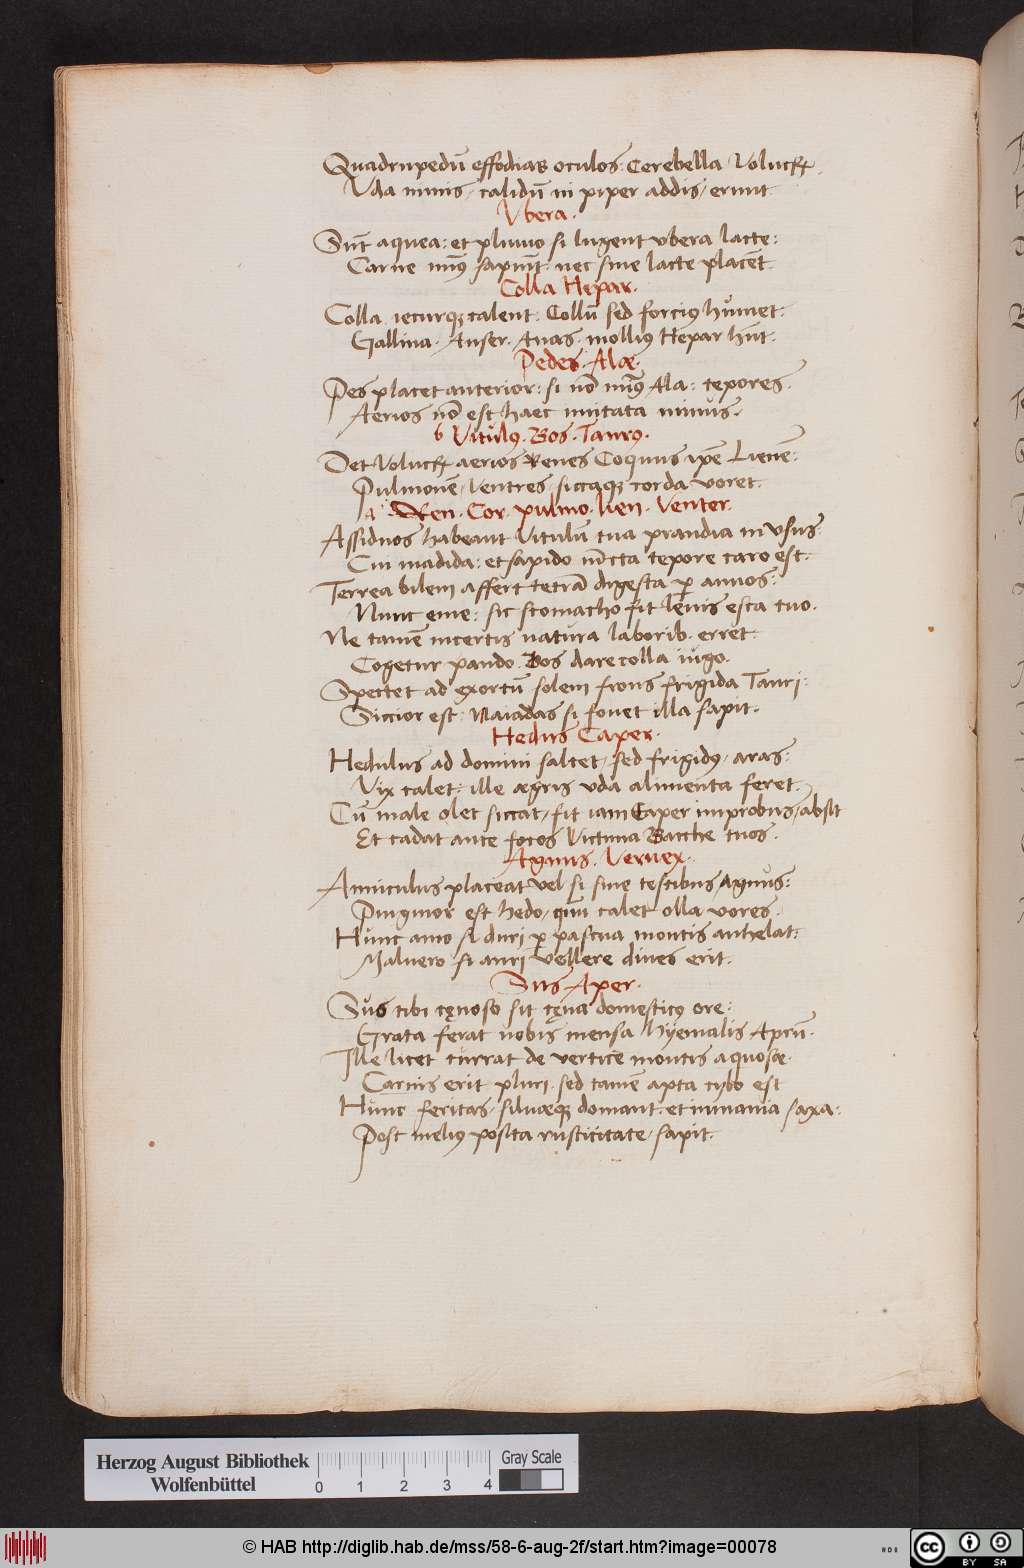 Quadrupedū effodias oculos: Cerebella Volucrꝝ.
Vda nimis, calidū ni piper addis, erunt
Vbera.
Sūt aquea: et pluuio si lugent vbera lacte:
Carne minꝰ sapiūt: nec sine lacte placēt.
Colla Hepar.
Colla iecurqꝫ calent: Collū sed forcius humet:
Gallina. Anser. Anas. molliꝰ Hepar hn̄t.
Pedes. Alæ.
Pes placet anterior: si nō minꝰ Ala: tepores.
Aerios nō est haec imitata minus.
b Vitulꝰ. Bos. Taurꝰ.
Det Volucrꝝ aerios Renes Coquus ipē Lienē:
Pulmonē, Ventres, siccaqꝫ corda voret.
a Ren. Cor. pulmo. lien. Venter.
Assiduos habeant Vitulū tua prandia in vsus.
Cui madida: et sapido iūcta tepore caro est.
Terrea bilem affert tetrā digesta ꝑ annos:
Nunc eme: sic stomacho fit leuis esca tuo.
Ne tamē incertis natura laborib. erret:
Cogetur pando Bos dare colla iugo.
Spectet ad exortū solem frons frigida Tauri:
Siccior est: Naiadas si fouet illa sapit.
Hedus Caper.
Hedulus ad domini saltet, sed frigidꝰ, aras:
Vix calet: ille ægris vda alimenta feret.
Cū male olet siccat, fit iam Caper improbus, absit
Et cadat ante focos Victima Bacche tuos.
Agnus. Veruex.
Anniculus placeat vel si sine testibus Agnus:
Pinguior est hedo, quū calet olla vores.
Hunc amo si duri ꝑ pascua montis anhelat:
Maluero si auri vellere diues erit.
Sus Aper.
Sus tibi cęnoso sit cęna domesticꝰ ore:
Grata ferat nobis mensa hyemalis Aprū.
Ille licet currat de vertice montis aquosæ.
Carnis erit pluri. sed tamē apta cybo est
Hunc feritas, siluæqꝫ domant. et inmania saxa:
Post meliꝰ posita rusticitate, sapit.
Herzog August Bibliothek
Wolfenbüttel
0 1 2 3 4
Gray Scale
© HAB http://diglib.hab.de/mss/58-6-aug-2f/start.htm?image=00078
cc BY SA